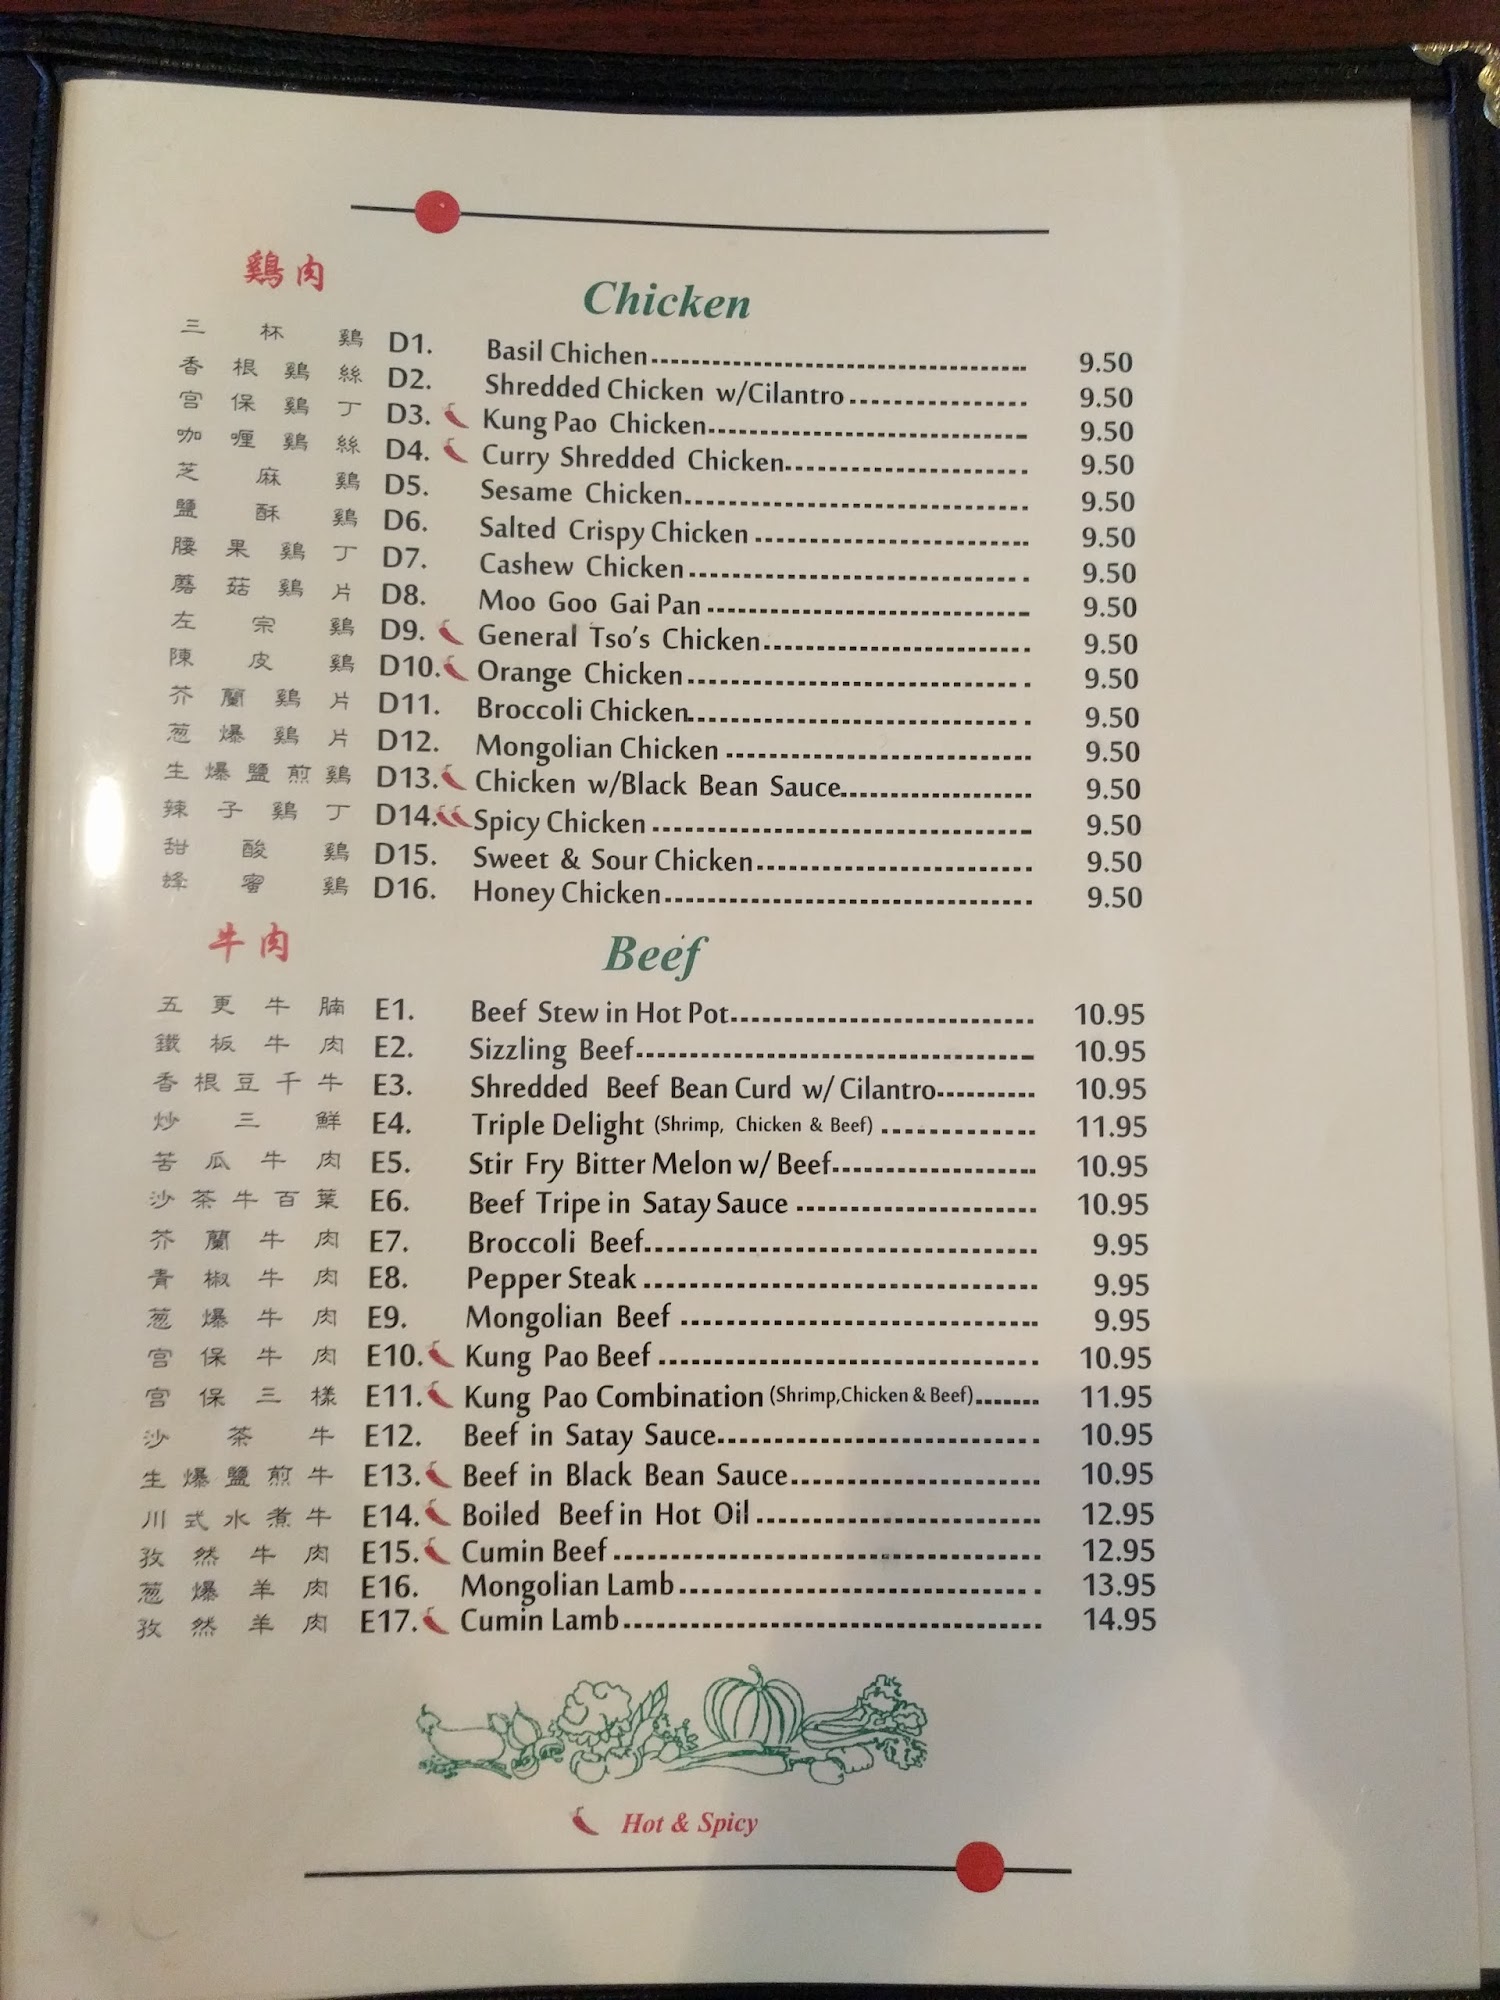 鷄肉 Chicken
三杯鷄 D1. Basil Chichen 9.50
香根鷄絲 D2. Shredded Chicken w/Cilantro 9.50
宮保鷄丁 D3. Kung Pao Chicken 9.50
咖喱鷄絲 D4. Curry Shredded Chicken 9.50
芝麻鷄 D5. Sesame Chicken 9.50
鹽酥鷄 D6. Salted Crispy Chicken 9.50
腰果鷄丁 D7. Cashew Chicken 9.50
蘑菇鷄片 D8. Moo Goo Gai Pan 9.50
左宗鷄 D9. General Tso's Chicken 9.50
陳皮鷄 D10. Orange Chicken 9.50
芥蘭鷄片 D11. Broccoli Chicken 9.50
葱爆鷄片 D12. Mongolian Chicken 9.50
生爆鹽煎鷄 D13. Chicken w/Black Bean Sauce 9.50
辣子鷄丁 D14. Spicy Chicken 9.50
甜酸鷄 D15. Sweet & Sour Chicken 9.50
蜂蜜鷄 D16. Honey Chicken 9.50
牛肉 Beef
五更牛腩 E1. Beef Stew in Hot Pot 10.95
鐵板牛肉 E2. Sizzling Beef 10.95
香根豆干牛 E3. Shredded Beef Bean Curd w/ Cilantro 10.95
炒三鮮 E4. Triple Delight (Shrimp, Chicken & Beef) 11.95
苦瓜牛肉 E5. Stir Fry Bitter Melon w/ Beef 10.95
沙茶牛百葉 E6. Beef Tripe in Satay Sauce 10.95
芥蘭牛肉 E7. Broccoli Beef 9.95
青椒牛肉 E8. Pepper Steak 9.95
葱爆牛肉 E9. Mongolian Beef 9.95
宮保牛肉 E10. Kung Pao Beef 10.95
宮保三樣 E11. Kung Pao Combination (Shrimp,Chicken & Beef) 11.95
沙茶牛 E12. Beef in Satay Sauce 10.95
生爆鹽煎牛 E13. Beef in Black Bean Sauce 10.95
川式水煮牛 E14. Boiled Beef in Hot Oil 12.95
孜然牛肉 E15. Cumin Beef 12.95
葱爆羊肉 E16. Mongolian Lamb 13.95
孜然羊肉 E17. Cumin Lamb 14.95
Hot & Spicy